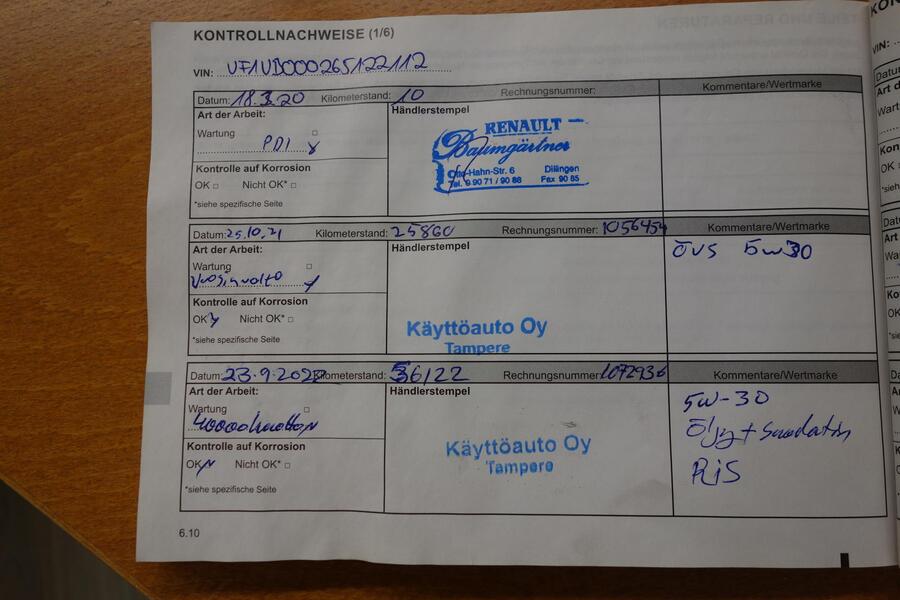 KONTROLLNACHWEISE (1/6)
VIN: VF1VB000265122112
Datum: 18.3.20 Kilometerstand: 10 Rechnungsnummer: Kommentare/Wertmarke
Art der Arbeit: Händlerstempel
Wartung
PDI
Kontrolle auf Korrosion
OK Nicht OK*
*siehe spezifische Seite
RENAULT
Baumgärtner
Otto-Hahn-Str. 6 Dillingen
Tel. 0 90 71 / 90 88 Fax 90 85
Datum: 25.10.21 Kilometerstand: 25860 Rechnungsnummer: 1056454 Kommentare/Wertmarke
Art der Arbeit: Händlerstempel
ÖVS 5W30
Wartung
Vuosihuolto
Kontrolle auf Korrosion
OK Nicht OK*
*siehe spezifische Seite
Käyttöauto Oy
Tampere
Datum: 23.9.2022 Kilometerstand: 36122 Rechnungsnummer: 1072936 Kommentare/Wertmarke
Art der Arbeit: Händlerstempel
5W-30
Wartung
40000huolto
Öljy + Suodatin
Kontrolle auf Korrosion
OK Nicht OK*
RiS
*siehe spezifische Seite
Käyttöauto Oy
Tampere
6.10